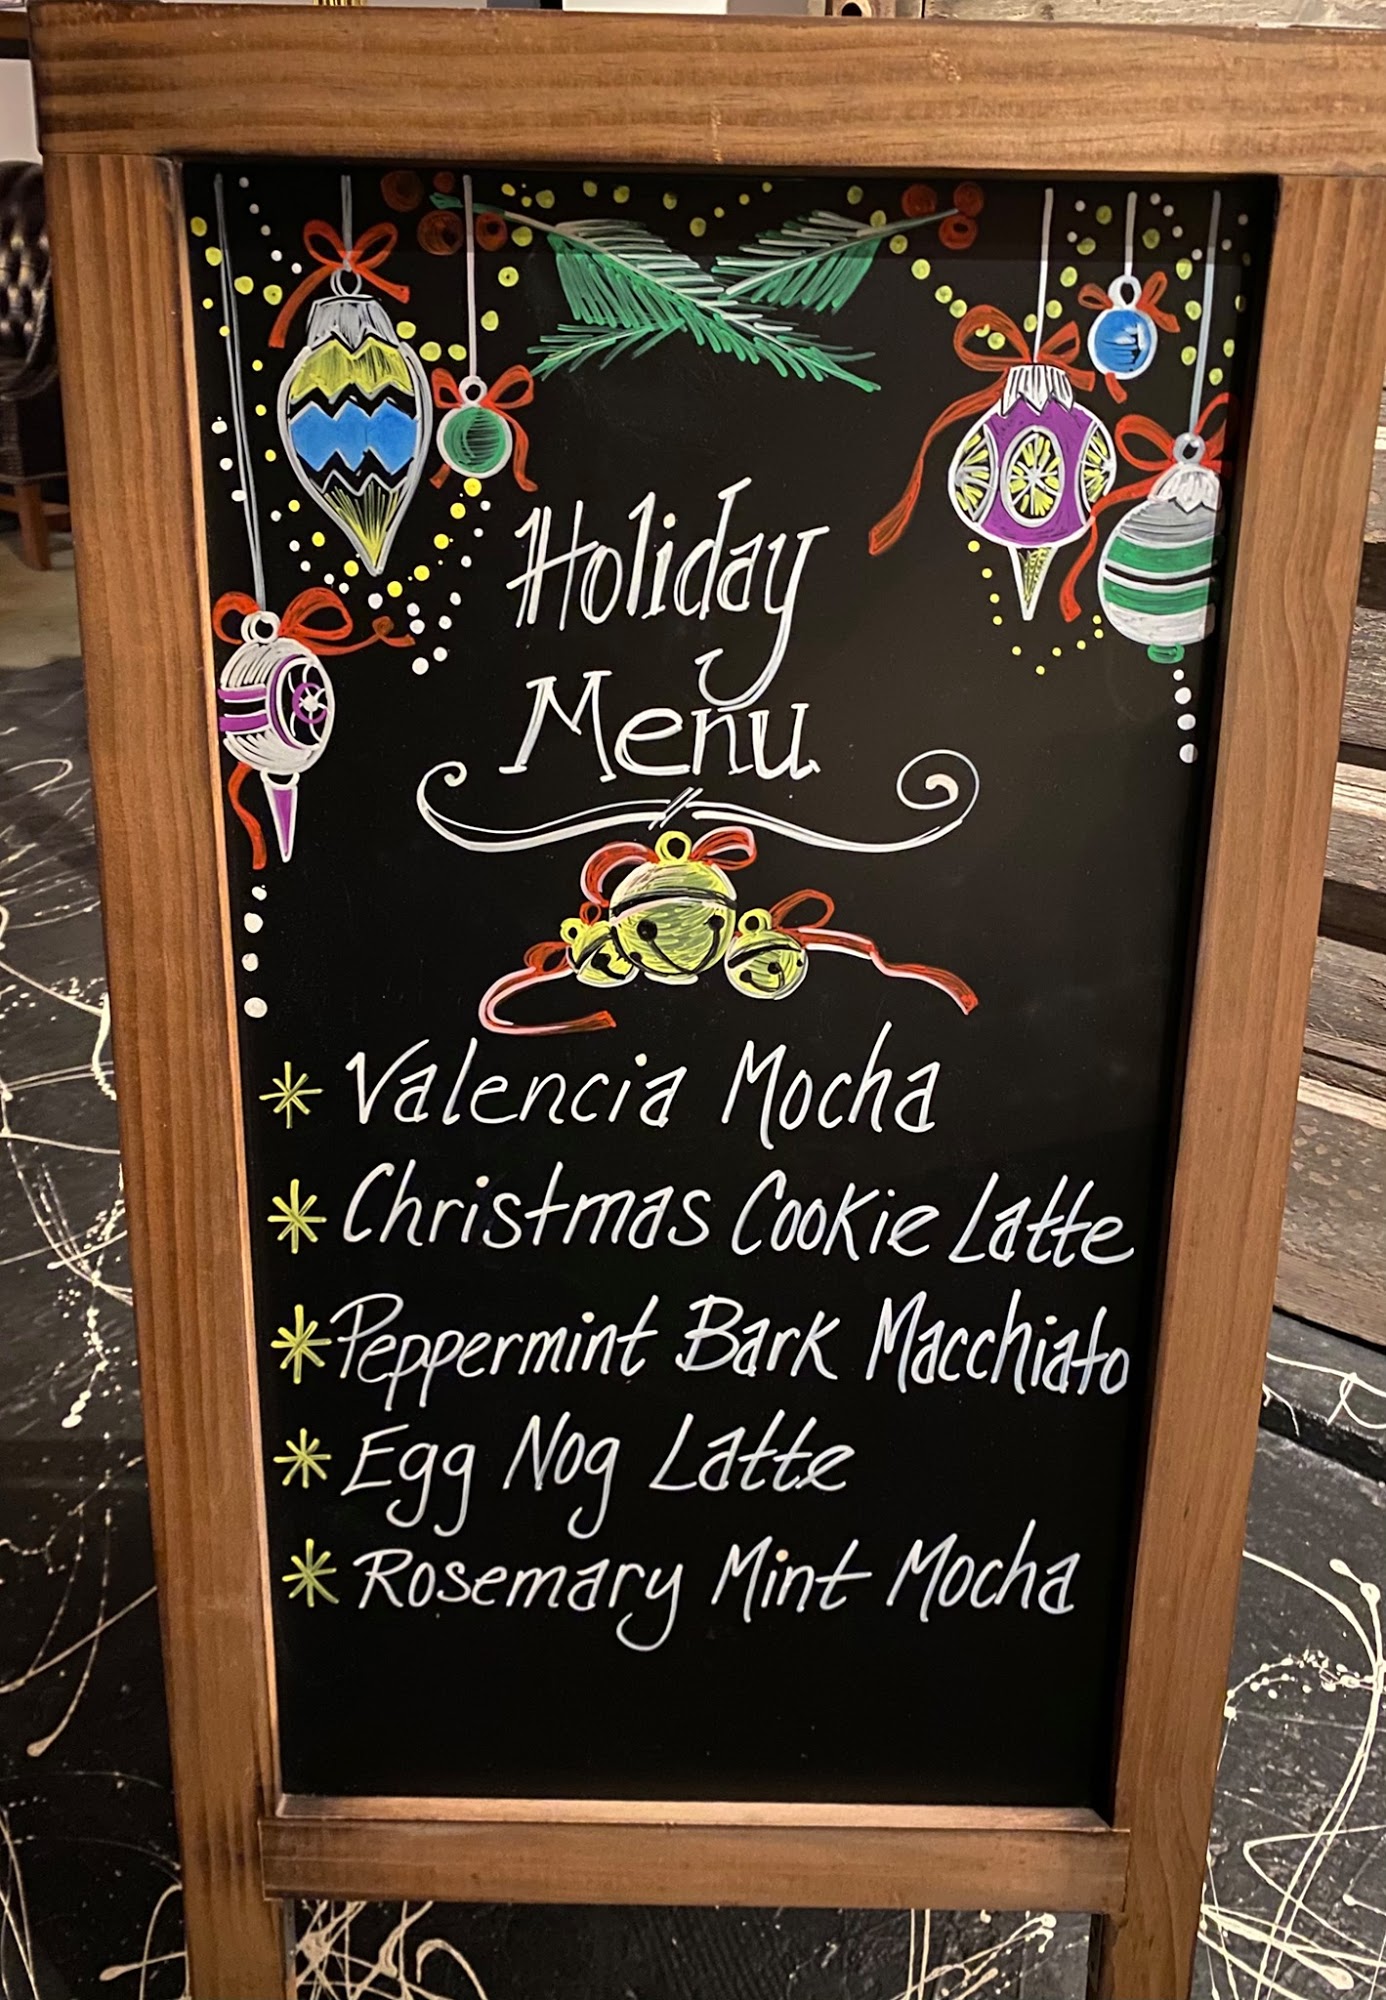 Holiday
Menu
Valencia Mocha
Christmas Cookie Latte
Peppermint Bark Macchiato
Egg Nog Latte
Rosemary Mint Mocha